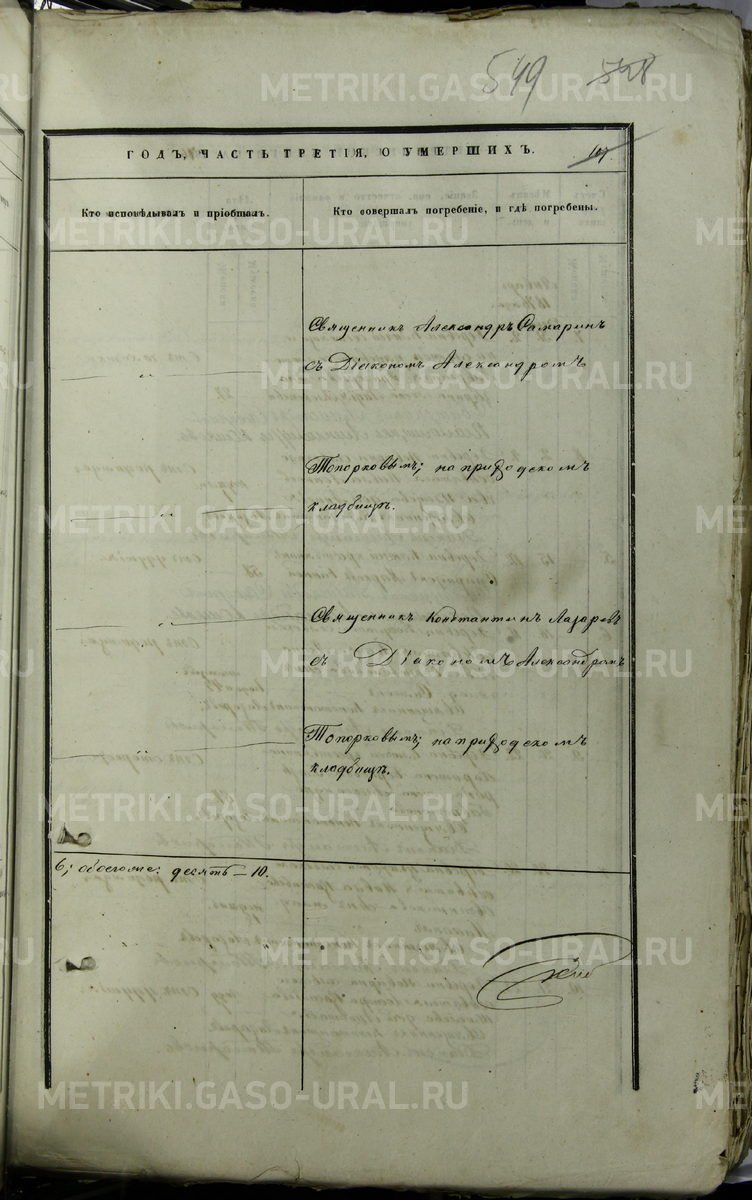 549 528
ГОДЪ, ЧАСТЬ ТРЕТІЯ, О УМЕРШИХЪ. 107.
Кто исповѣдывалъ и пріобщалъ.
Кто совершалъ погребеніе, и гдѣ погребены.
Священникъ Александръ Самаринъ
съ Діакономъ Александромъ
Топорковымъ; на приходскомъ
кладбищѣ.
Священникъ Константинъ Лазаревъ
съ Діакономъ Александромъ
Топорковымъ; на приходскомъ
кладбищѣ.
6; обоего же: десять — 10.
METRIKI.GASO-URAL.RU